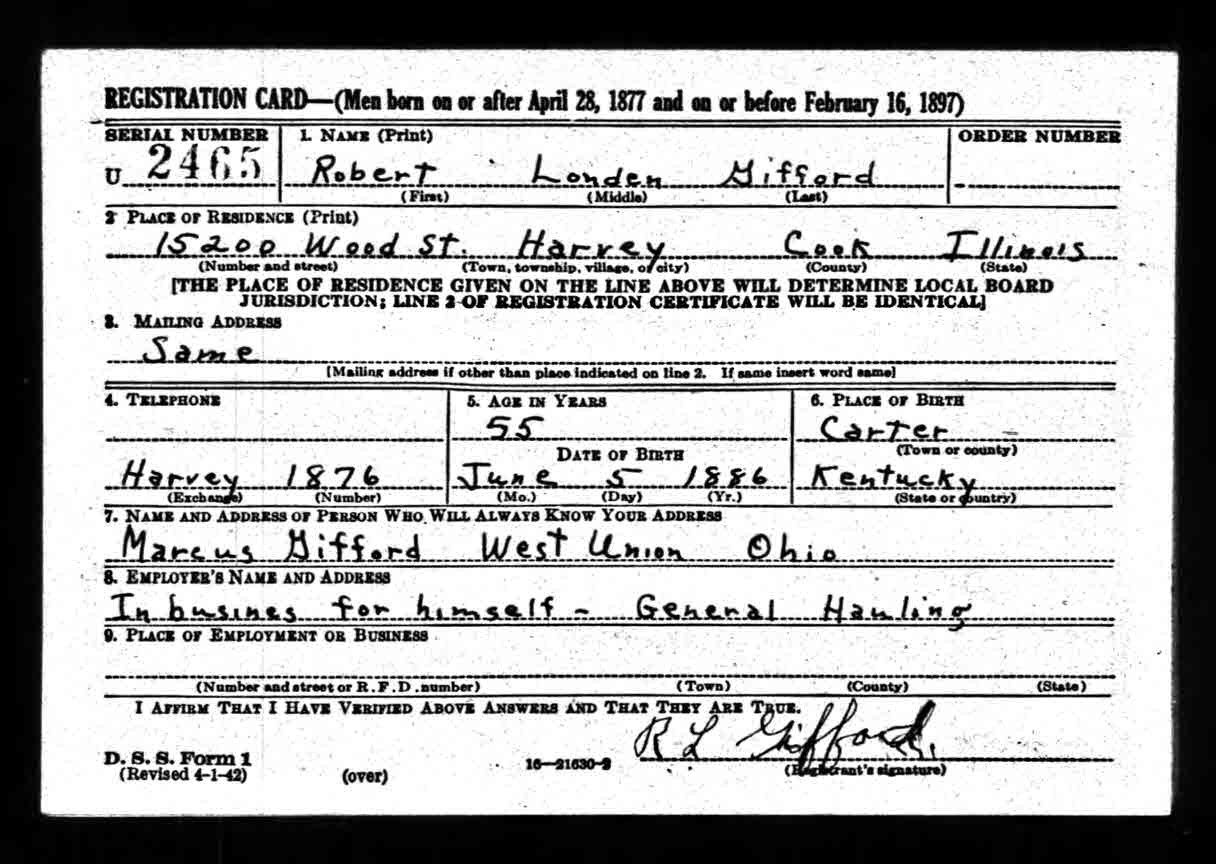 REGISTRATION CARD—(Men born on or after April 28, 1877 and on or before February 16, 1897)
SERIAL NUMBER 1. NAME (Print) ORDER NUMBER
U 2465 Robert Londen Gifford
(First) (Middle) (Last)
2 PLACE OF RESIDENCE (Print)
15200 Wood St. Harvey Cook Illinois
(Number and street) (Town, township, village, or city) (County) (State)
[THE PLACE OF RESIDENCE GIVEN ON THE LINE ABOVE WILL DETERMINE LOCAL BOARD
JURISDICTION; LINE 2 OF REGISTRATION CERTIFICATE WILL BE IDENTICAL]
3. MAILING ADDRESS
Same
[Mailing address if other than place indicated on line 2. If same insert word same]
4. TELEPHONE 5. AGE IN YEARS 6. PLACE OF BIRTH
55 Carter
DATE OF BIRTH (Town or county)
Harvey 1876 June 5 1886 Kentucky
(Exchange) (Number) (Mo.) (Day) (Yr.) (State or country)
7. NAME AND ADDRESS OF PERSON WHO WILL ALWAYS KNOW YOUR ADDRESS
Marcus Gifford West Union Ohio
8. EMPLOYER'S NAME AND ADDRESS
In busines for himself - General Hauling
9. PLACE OF EMPLOYMENT OR BUSINESS
(Number and street or R.F.D. number) (Town) (County) (State)
I AFFIRM THAT I HAVE VERIFIED ABOVE ANSWERS AND THAT THEY ARE TRUE.
R L Gifford.
D. S. S. Form 1
(Revised 4-1-42) (over) 16—21630-2 (Registrant's signature)